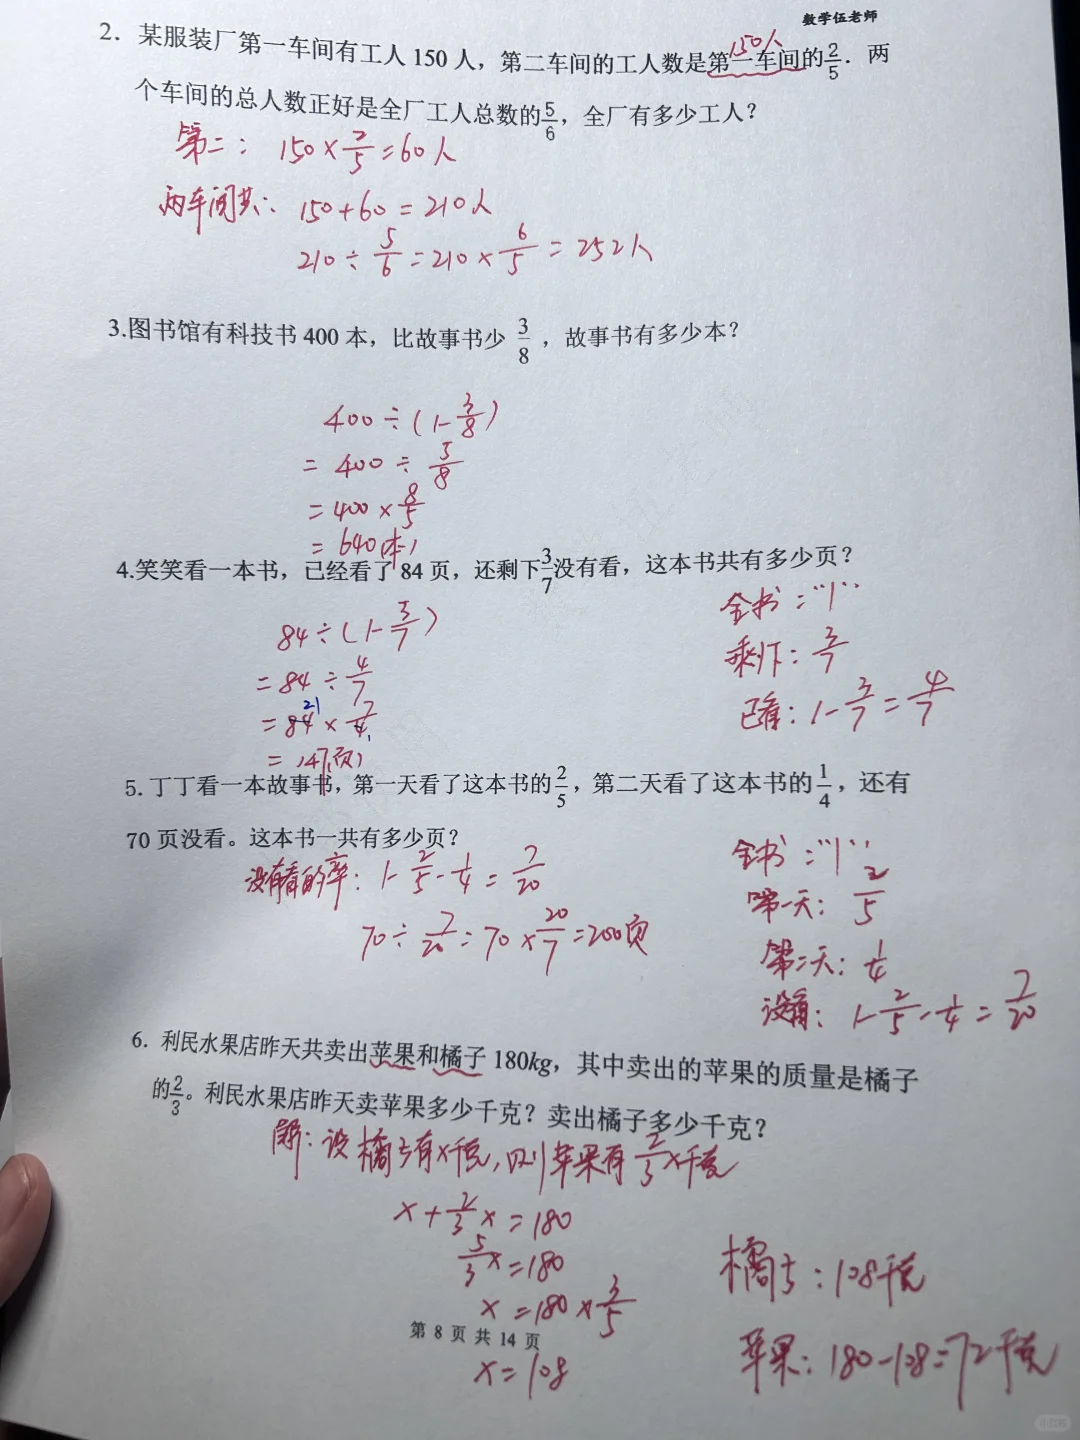 数学伍老师
2. 某服装厂第一车间有工人 150 人，第二车间的工人数是第一车间的2/5. 两
150人
个车间的总人数正好是全厂工人总数的5/6，全厂有多少工人？
第二： 150×2/5=60人
两车间共： 150+60=210人
210÷5/6=210×6/5=252人
3.图书馆有科技书 400 本，比故事书少 3/8 ，故事书有多少本？
400÷(1-3/8)
=400÷5/8
=400×8/5
=640(本)
4.笑笑看一本书，已经看了 84 页，还剩下3/7没有看，这本书共有多少页？
84÷(1-3/7)
=84÷4/7
=84×7/4
21
1
=147(页)
全书："1"
剩下：3/7
已看：1-3/7=4/7
5. 丁丁看一本故事书，第一天看了这本书的2/5，第二天看了这本书的1/4，还有
70 页没看。这本书一共有多少页？
没有看的率：1-2/5-1/4=7/20
70÷7/20=70×20/7=200页
全书："1"
第一天：2/5
第二天：1/4
没看：1-2/5-1/4=7/20
6. 利民水果店昨天共卖出苹果和橘子 180kg，其中卖出的苹果的质量是橘子
的2/3。利民水果店昨天卖苹果多少千克？卖出橘子多少千克？
解：设橘子有x千克，则苹果有2/3x千克
x+2/3x=180
5/3x=180
x=180×3/5
x=108
橘子：108千克
苹果：180-108=72千克
第 8 页 共 14 页
小红书